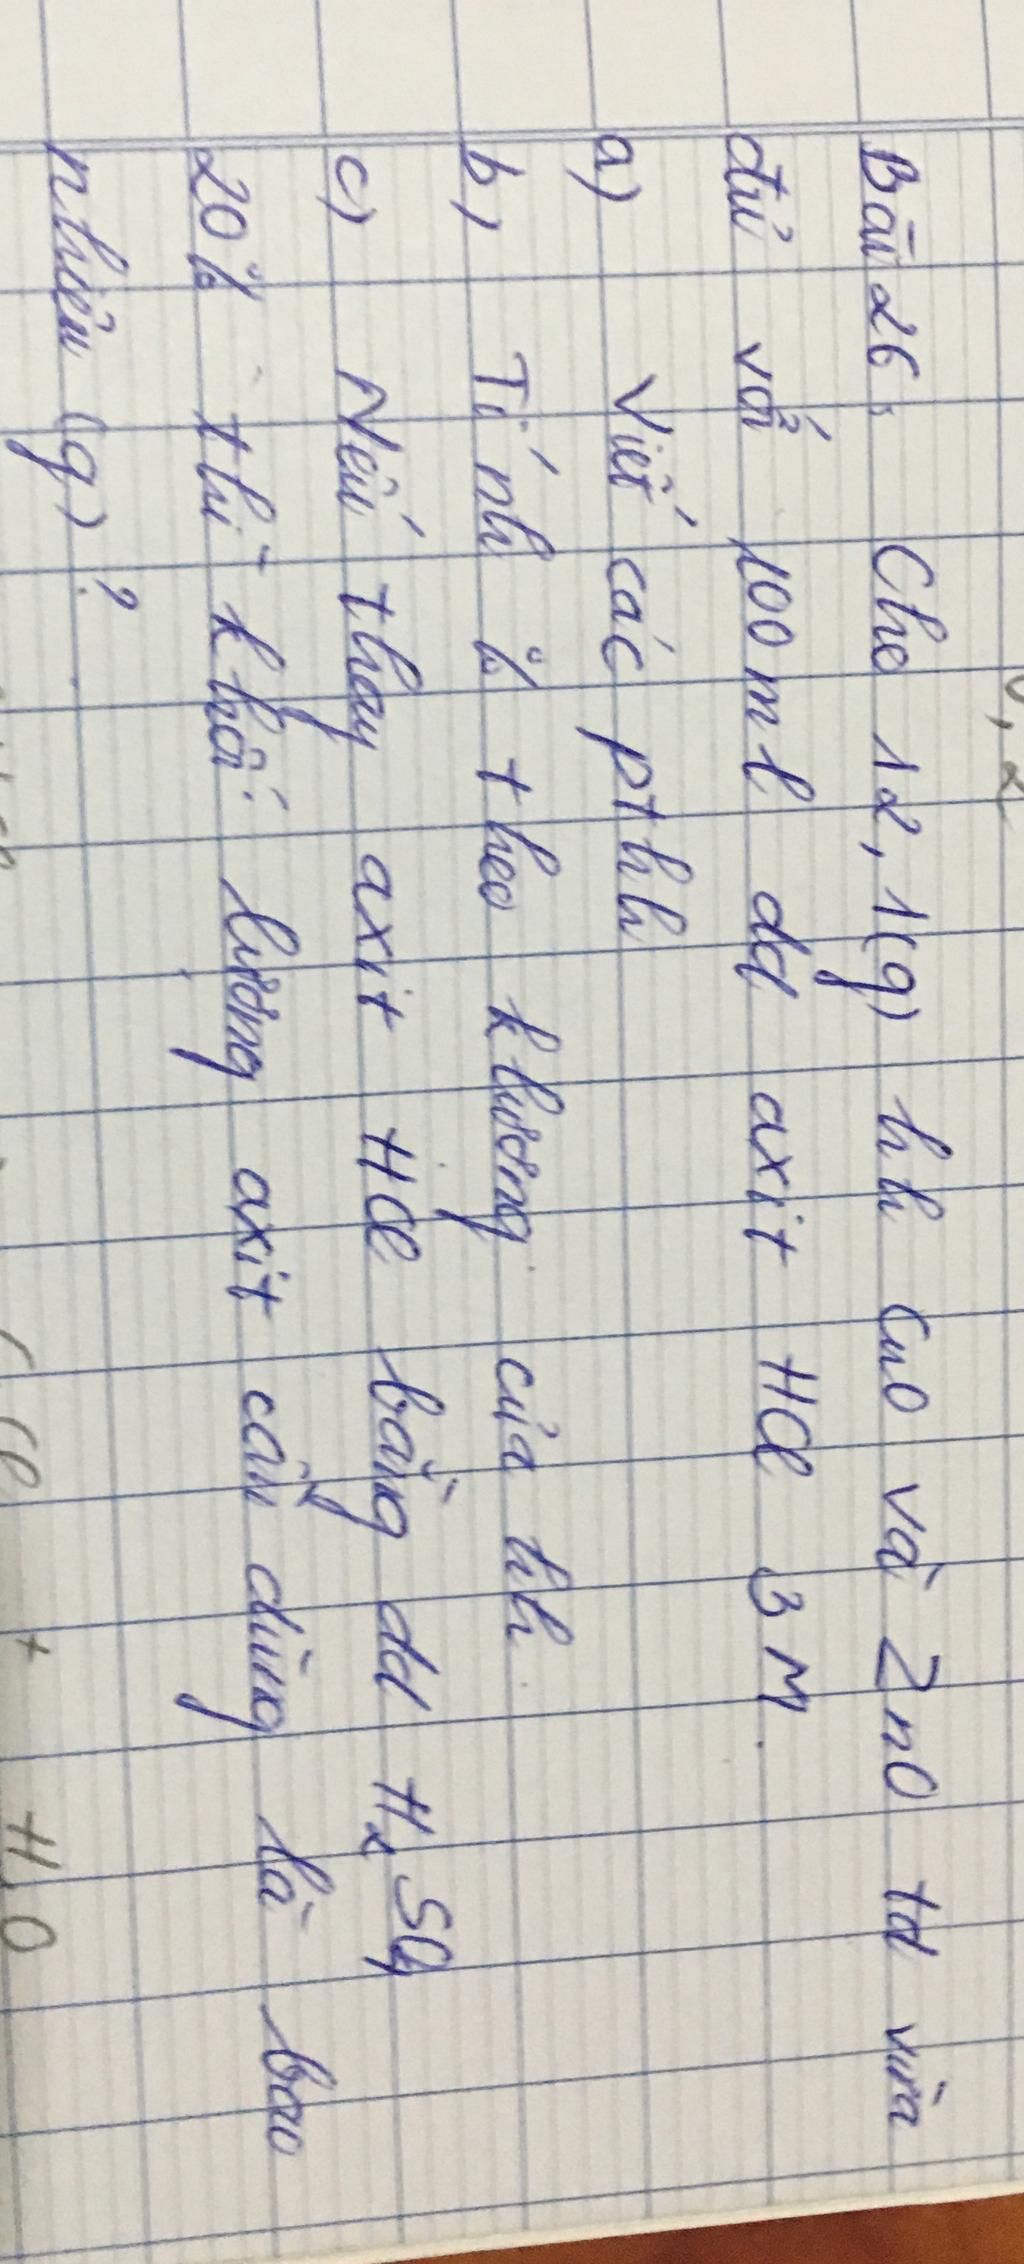 Bài 26: Cho 12,1(g) hh CuO và ZnO td vừa
đủ với 100ml dd axit HCl 3M.
a) Viết các pthh
b) Tính % theo klượng của hh.
c) Nếu thay axit HCl bằng dd H₂SO₄
20% thì khối lượng axit cần dùng là bao
nhiêu (g)?